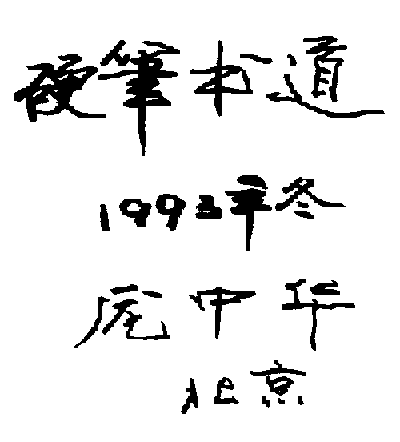 硬筆书道
1993年冬
庞中华
北京